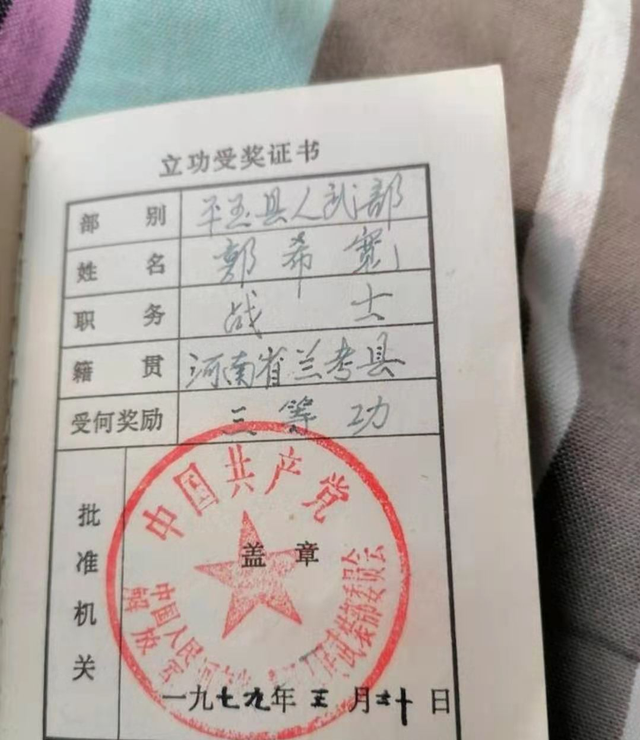 立功受奖证书
部别 平玉县人武部
姓名 郭希宽
职务 战士
籍贯 河南省兰考县
受何奖励 三等功
批准机关 盖章
中国共产党
中国人民解放军
武装部委员会
一九七九年三月二十日